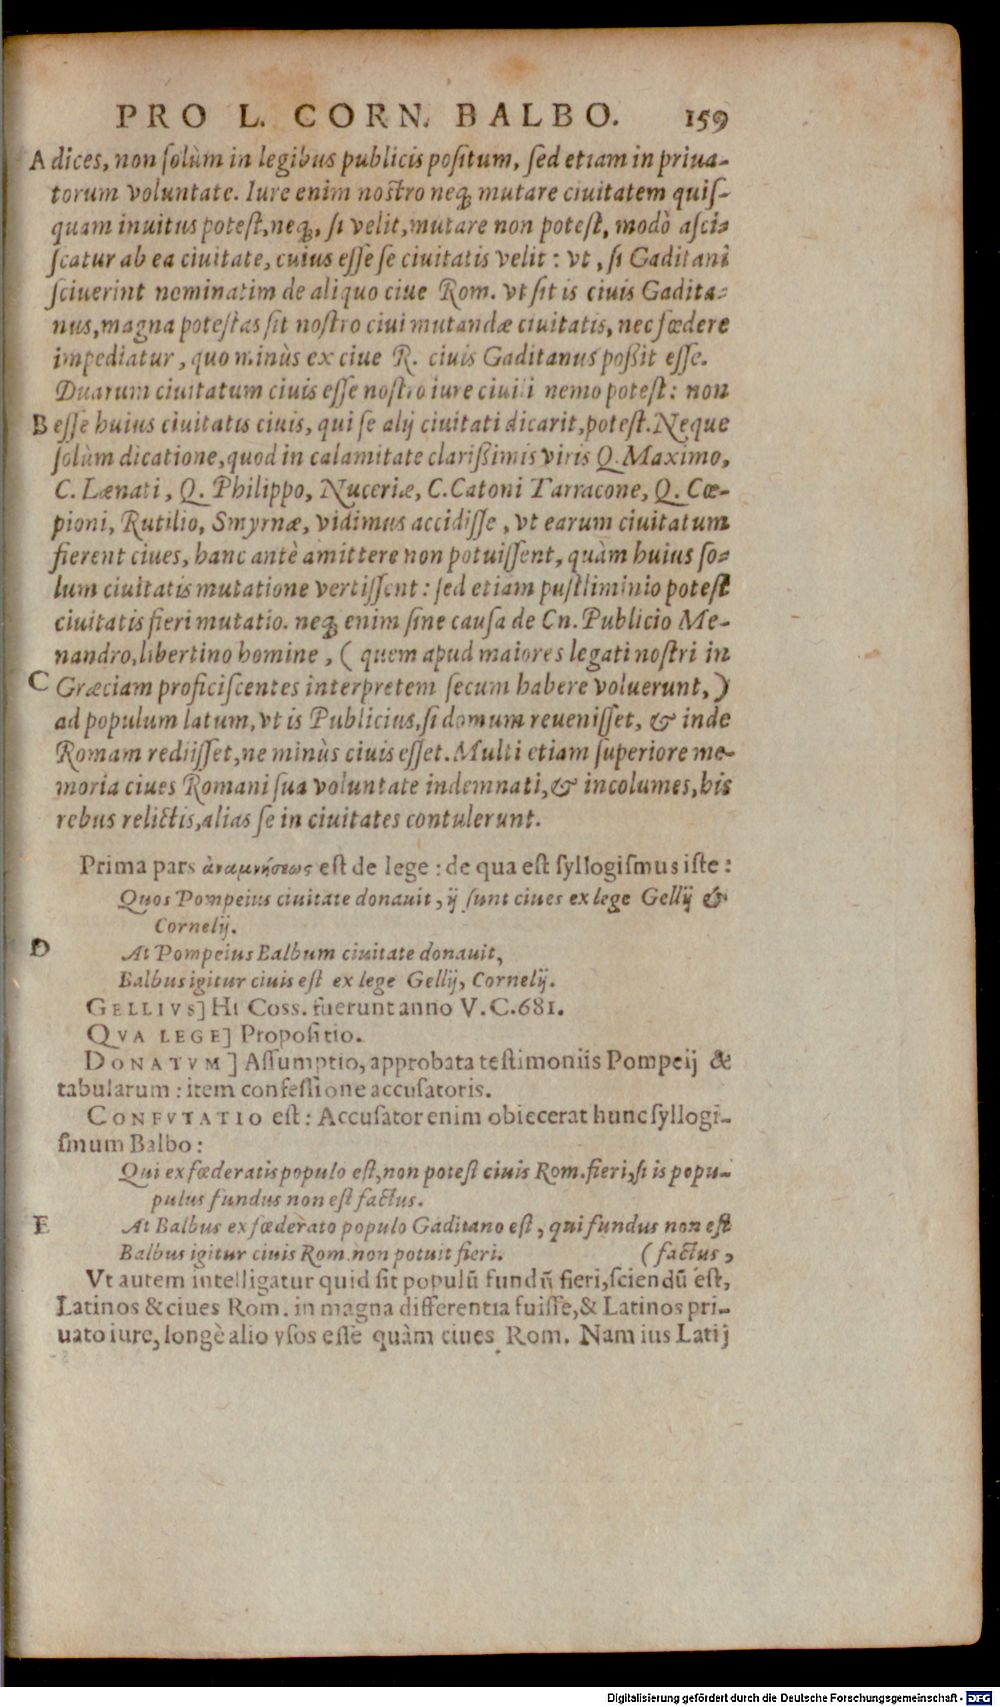 PRO L. CORN. BALBO. 159
A dices, non ſolùm in legibus publicis poſitum, ſed etiam in priua-
torum voluntate. Iure enim noſtro neq; mutare ciuitatem quiſ-
quam inuitus poteſt, neq;, ſi velit, mutare non poteſt, modò aſci-
ſcatur ab ea ciuitate, cuius eſſe ſe ciuitatis velit: vt, ſi Gaditani
ſciuerint nominatim de aliquo ciue Rom. vt ſit is ciuis Gadita-
nus, magna poteſtas ſit noſtro ciui mutandæ ciuitatis, nec fœdere
impediatur, quo minùs ex ciue R. ciuis Gaditanus poßit eſſe.
Duarum ciuitatum ciuis eſſe noſtro iure ciuili nemo poteſt: non
B eſſe huius ciuitatis ciuis, qui ſe alij ciuitati dicarit, poteſt. Neque
ſolùm dicatione, quod in calamitate clarißimis viris Q. Maximo,
C. Lænati, Q. Philippo, Nuceriæ, C. Catoni Tarracone, Q. Cœ-
pioni, Rutilio, Smyrnæ, vidimus accidiſſe, vt earum ciuitatum
fierent ciues, hanc antè amittere non potuiſſent, quàm huius ſo-
lum ciuitatis mutatione vertiſſent: ſed etiam puſtliminio poteſt
ciuitatis fieri mutatio. neq; enim ſine cauſa de Cn. Publicio Me-
nandro, libertino homine, (quem apud maiores legati noſtri in
C Græciam proficiſcentes interpretem ſecum habere voluerunt,)
ad populum latum, vt is Publicius, ſi domum reueniſſet, & inde
Romam rediiſſet, ne minùs ciuis eſſet. Multi etiam ſuperiore me-
moria ciues Romani ſua voluntate indemnati, & incolumes, his
rebus relictis, alias ſe in ciuitates contulerunt.
Prima pars ἀναμνήσεως est de lege: de qua est ſyllogiſmus iſte:
Quos Pompeius ciuitate donauit, ij ſunt ciues ex lege Gellij &
Cornelij.
D At Pompeius Balbum ciuitate donauit,
Balbus igitur ciuis eſt ex lege Gellij, Cornelij.
GELLIVS] Hi Coss. fuerunt anno V. C. 681.
QVA LEGE] Propoſitio.
DONATVM] Aſſumptio, approbata teſtimoniis Pompeij &
tabularum: item confeſſione accuſatoris.
CONFVTATIO eſt: Accuſator enim obiecerat hunc ſyllogi-
ſmum Balbo:
Qui ex fœderatis populo eſt, non poteſt ciuis Rom. fieri, ſi is popu-
pulus fundus non eſt factus.
E At Balbus ex fœderato populo Gaditano eſt, qui fundus non eſt
Balbus igitur ciuis Rom. non potuit fieri. (factus,
Vt autem intelligatur quid ſit populũ fundũ fieri, ſciendũ eſt,
Latinos & ciues Rom. in magna differentia fuiſſe, & Latinos pri-
uato iure, longè alio vſos eſſe quàm ciues Rom. Nam ius Latij
Digitalisierung gefördert durch die Deutsche Forschungsgemeinschaft - DFG